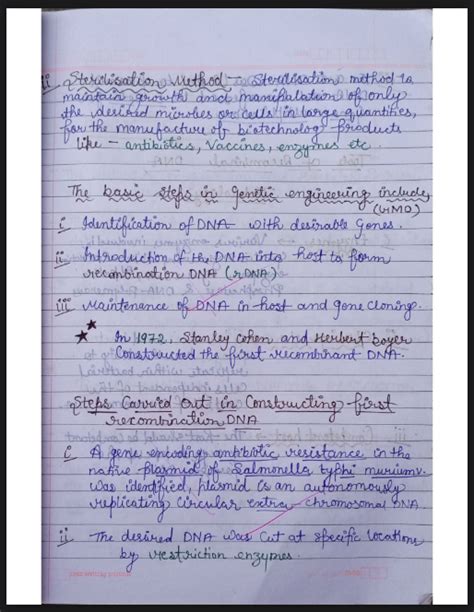 ii Sterilisation Method - Sterilisation method to
maintain growth and manipulation of only
the desired microbes or cells in large quantities,
for the manufacture of biotechnology products
like - antibiotics, Vaccines, enzymes etc.
The basic steps in genetic engineering include,
(GMO)
i. Identification of DNA with desirable genes.
ii. Introduction of the DNA into host to form
recombination DNA (rDNA)
iii Maintenance of DNA in host and gene cloning.
In 1972, Stanley Cohen and Herbert boyer
Constructed the first recombinant DNA.
Steps Carried Out in Constructing first
recombination DNA
i. A gene encoding antibiotic resistance in the
native plasmid of Salmonella typhi muriums.
was identified, plasmid is an autonomously
replicating Circular extra chromosomal DNA.
ii. The desired DNA was cut at specific locations
by restriction enzymes.